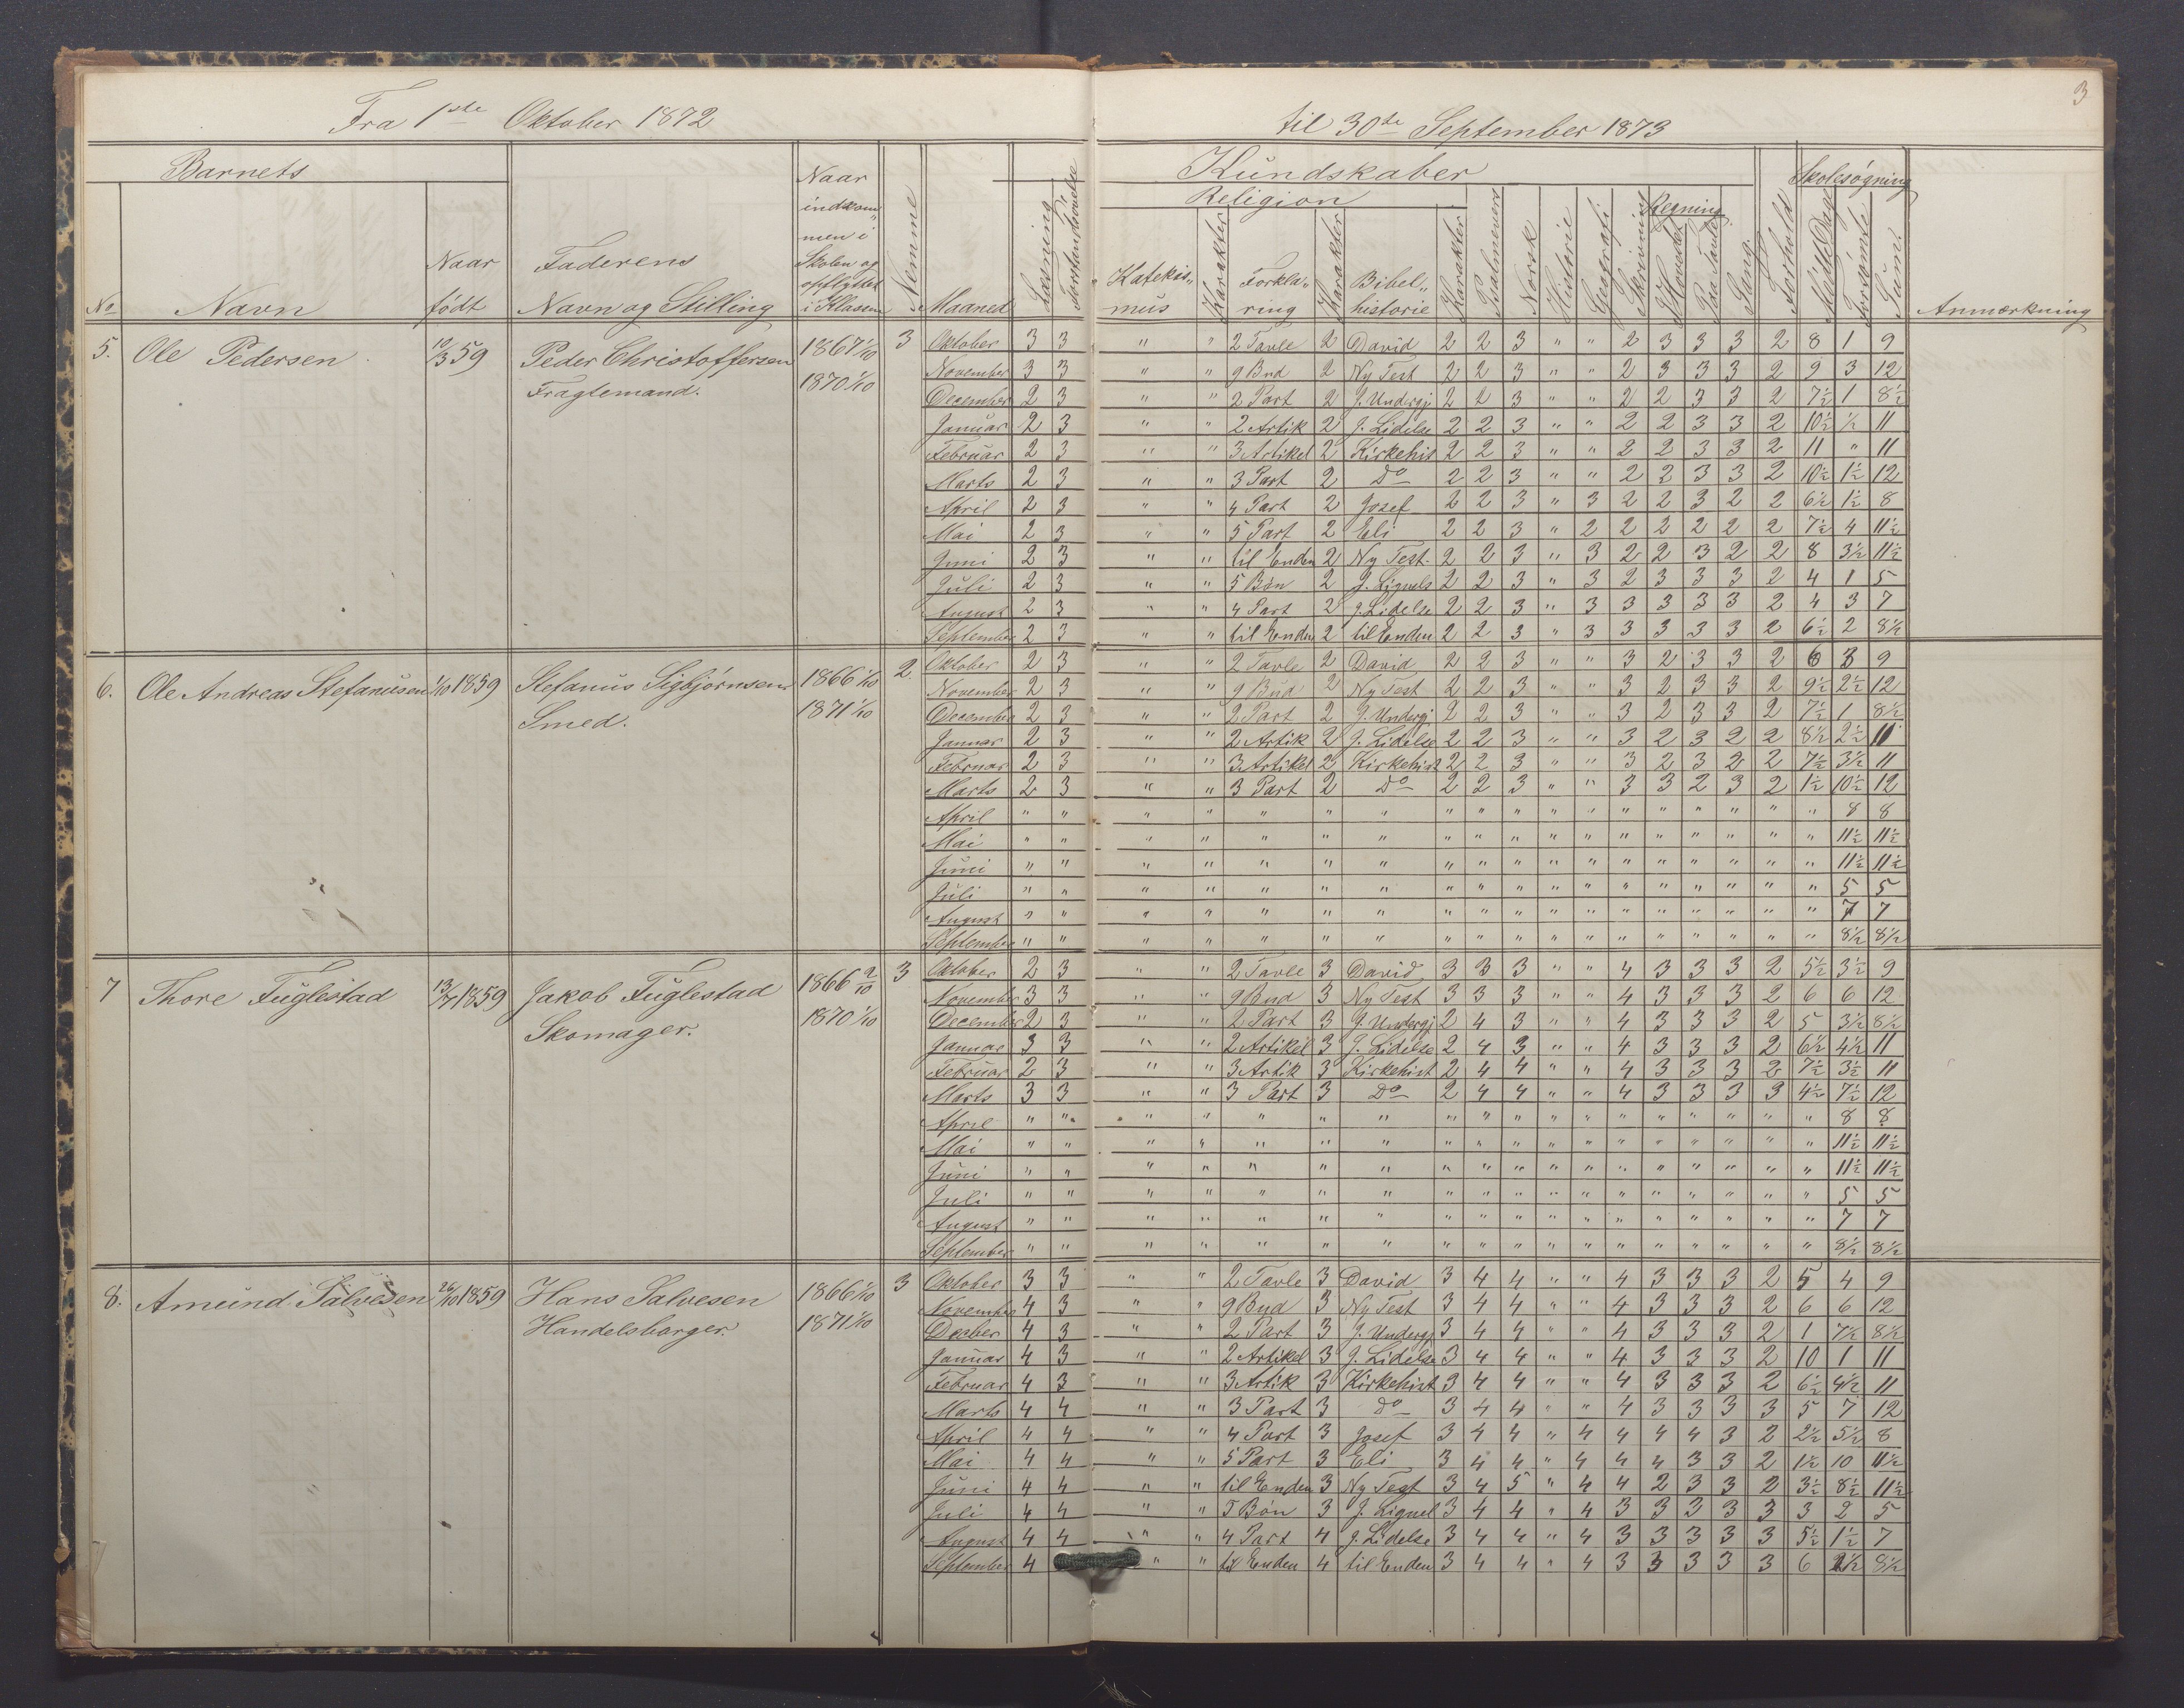 3
Fra 1ste Oktober 1872 til 30te September 1873
Barnets Kundskaber Skolesøgning
Religion Regning
No Navn Naar født Faderens Navn og Stilling Naar indkom„ men i Skolen og opflyttet i Klassen Nemme Maaned Læsning Forstandsøvelse Katekis„ mus Karakter Forkla„ ring Karakter Bibel„ historie Karakter Psalmevers Norsk Historie Geografi Skrivning I Hovedet Paa Tavlen Sang Forhold Mødte Dage Forsømte Sum. Anmærkning
5. Ole Pedersen 10/3 59 Peder Christoffersen 1867 1/10 3 Oktober 3 3 " " 2 Tavle 2 David 2 2 3 " " 2 3 3 3 2 8 1 9
Fragtemand. 1870 1/10 November 3 3 " " 9 Bud 2 Ny Test 2 2 3 " " 2 3 3 3 2 9 3 12
December 2 3 " " 2 Part 2 J. Undergj 2 2 3 " " 2 2 3 3 2 7½ 1 8½
Januar 2 3 " " 2 Artik 2 J. Lidelse 2 2 3 " " 2 2 3 3 2 10½ ½ 11
Februar 2 3 " " 3 Artikel 2 Kirkehist 2 2 3 " " 2 2 3 3 2 11 " 11
Marts 2 3 " " 3 Part 2 Do 2 2 3 " " 2 2 3 3 2 10½ 1½ 12
April 2 3 " " 4 Part 2 Josef 2 2 3 " 3 2 2 3 2 2 6½ 1½ 8
Mai 2 3 " " 5 Part 2 Eli 2 2 3 " 2 2 2 2 2 2 7½ 4 11½
Juni 2 3 " " til Enden 2 Ny Test. 2 2 3 " 3 2 2 3 2 2 8 3½ 11½
Juli 2 3 " " 5 Bøn 2 J. Lignels 2 2 3 " 3 2 3 3 3 2 4 1 5
August 2 3 " " 4 Part 2 J. Lidelse 2 2 3 " 3 3 3 3 3 2 4 3 7
September 2 3 " " til Enden 2 til Enden 2 2 3 " 3 3 3 3 3 2 6½ 2 8½
6. Ole Andreas Stefanusen 1/10 1859 Stefanus Sigbjørnsen 1866 1/10 2. Oktober 2 3 " " 2 Tavle 2 David 2 2 3 " " 3 2 3 3 2 6 3 9
Smed. 1871 1/10 November 2 3 " " 9 Bud 2 Ny Test 2 2 3 " " 3 2 3 3 2 9½ 2½ 12
December 2 3 " " 2 Part 2 J. Undergj. 2 2 3 " " 3 2 3 3 2 7½ 1 8½
Januar 2 3 " " 2 Artik 2 J. Lidelse 2 2 3 " " 3 2 3 2 2 8½ 2½ 11
Februar 2 3 " " 3 Artikel 2 Kirkehist 2 2 3 " " 3 2 3 2 2 7½ 3½ 11
Marts 2 3 " " 3 Part 2 Do 2 2 3 " " 3 3 2 3 2 1½ 10½ 12
April " " " " " " " " " " " " " " " " " " 8 8
Mai " " " " " " " " " " " " " " " " " " 11½ 11½
Juni " " " " " " " " " " " " " " " " " " 11½ 11½
Juli " " " " " " " " " " " " " " " " " " 5 5
August " " " " " " " " " " " " " " " " " " 7 7
September " " " " " " " " " " " " " " " " " " 8½ 8½
7 Thore Fuglestad 13/7 1859 Jakob Fuglestad 1866 2/10 3 Oktober 2 3 " " 2 Tavle 3 David 3 3 3 " " 4 3 3 3 2 5½ 3½ 9
Skomager. 1870 1/10 November 3 3 " " 9 Bud 3 Ny Test 3 3 3 " " 4 3 3 3 2 6 6 12
December 2 3 " " 2 Part 3 J. Undergj 2 4 3 " " 4 3 3 3 2 5 3½ 8½
Januar 3 3 " " 2 Artikel 3 J. Lidelse 2 4 3 " " 4 3 3 3 2 6½ 4½ 11
Februar 2 3 " " 3 Artik 3 Kirkehist 2 4 4 " " 4 3 3 3 2 7½ 3½ 11
Marts 3 3 " " 3 Part 3 Do 2 4 4 " " 4 3 3 3 3 4½ 7½ 12
April " " " " " " " " " " " " " " " " " " 8 8
Mai " " " " " " " " " " " " " " " " " " 11½ 11½
Juni " " " " " " " " " " " " " " " " " " 11½ 11½
Juli " " " " " " " " " " " " " " " " " " 5 5
August " " " " " " " " " " " " " " " " " " 7 7
September " " " " " " " " " " " " " " " " " " 8½ 8½
8. Amund Salvesen 26/10 1859 Hans Salvesen 1866 1/10 3 Oktober 3 3 " " 2 Tavle 3 David 3 4 4 " " 4 3 3 3 2 5 4 9
Handelsborger. 1871 1/10 November 4 3 " " 9 Bud 3 Ny Test 3 4 4 " " 4 3 3 3 2 6 6 12
Decber 4 3 " " 2 Part 3 J. Undergj 3 4 4 " " 4 3 3 3 2 1 7½ 8½
Januar 4 3 " " 2 Artikel 3 J. Lidelse 3 4 4 " " 4 3 3 3 2 10 1 11
Februar 4 3 " " 3 Artik 3 Kirkehist 3 4 4 " " 4 3 3 3 2 6½ 4½ 11
Marts 4 4 " " 3 Part 3 do 3 4 4 " " 4 3 3 3 3 5 7 12
April 4 4 " " 4 Part 3 Josef 3 4 4 " 4 4 4 4 3 2 2½ 5½ 8
Mai 4 4 " " 5 Part 3 Eli 3 4 4 " 4 4 4 3 3 2 1½ 10 11½
Juni 4 4 " " til Enden 3 Ny Test 3 4 5 " 4 4 2 3 3 2 3½ 8½ 11½
Juli 4 4 " " 5 Bøn 3 J. Lignel 3 4 4 " 4 3 3 3 3 3 3 2 5
August 4 4 " " 4 Part 4 J. Lidelse 3 4 4 " 4 3 3 3 3 3 5½ 1½ 7
September 4 " " til Enden 4 til Enden 3 4 4 " 4 3 3 3 3 3 6 2½ 8½